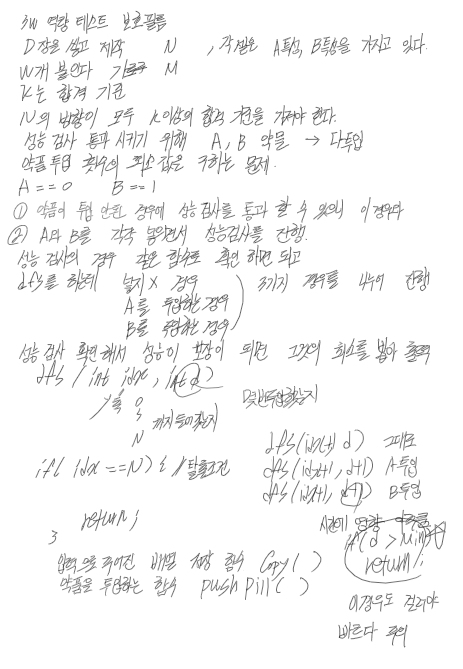 SW 역량 테스트 보호필름
D장을 쌓고 제작 N , 각 셀은 A특성, B특성을 가지고 있다.
W개 붙인다 가로 M
K는 합격 기준
N의 방향이 모두 K이상의 합격 기준을 가져야 한다.
성능 검사 통과 시키기 위해 A, B 약물 → 다 투입
약품 투입 횟수의 최소값을 구하는 문제.
A == 0 B == 1
① 약품이 투입 안된 경우에 성능검사를 통과 할 수 있으니 이 경우다
② A와 B를 각각 넣으면서 성능검사를 진행.
성능 검사의 경우 같은 함수로 확인 하면 되고
dfs를 하는데 넣지 X 경우
A를 투입하는 경우
B를 투입하는 경우
3가지 경우를 나누어 진행
성능 검사 확인해서 성능이 보장이 되면 그것의 최소를 뽑아 출력
dfs ( int idx, int d )
0
N 까지 들어갔는지
몇번 투입했는지
if( idx == N) { // 탈출조건
return;
}
dfs(idx+1, d) 그대로
dfs(idx+1, d+1) A투입
dfs(idx+1, d+1) B투입
시간에 영향
if(d > Min)
return;
이경우도 걸러야
빠르다
입력으로 주어진 배열 저장 함수 Copy( )
약품을 투입하는 함수 pushpill( )